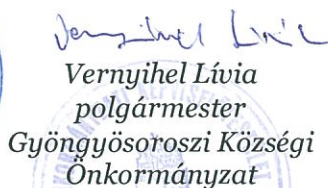 Vernyihel Lívia
Vernyihel Lívia
polgármester
Gyöngyösoroszi Községi
Önkormányzat